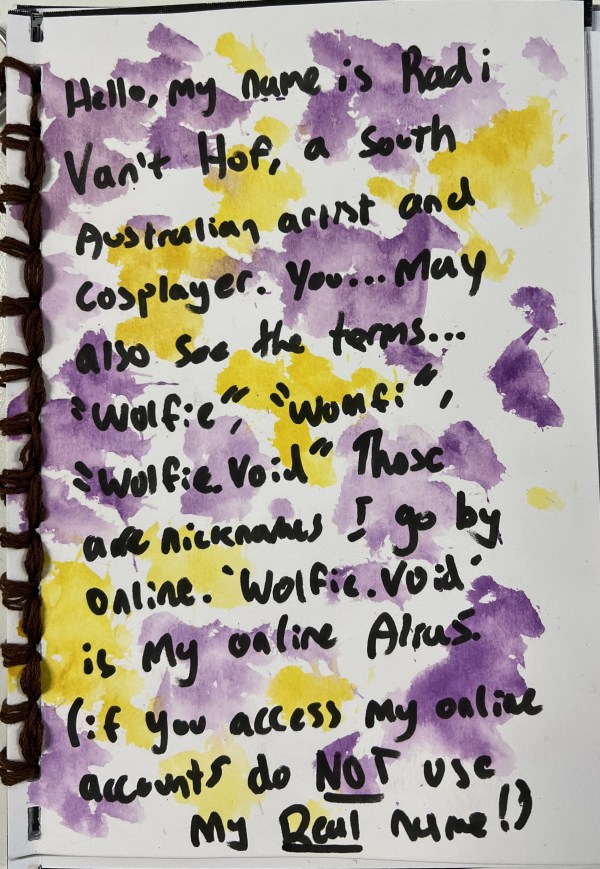 Hello, my name is Radi
Van't Hof, a South
Australian artist and
cosplayer. You... May
also see the terms...
"Wolfie", "Womfi",
"Wolfie.Void" Those
are nicknames I go by
online. 'Wolfie.Void'
is My online Alias.
(if you access my online
accounts do NOT use
My Real name!)